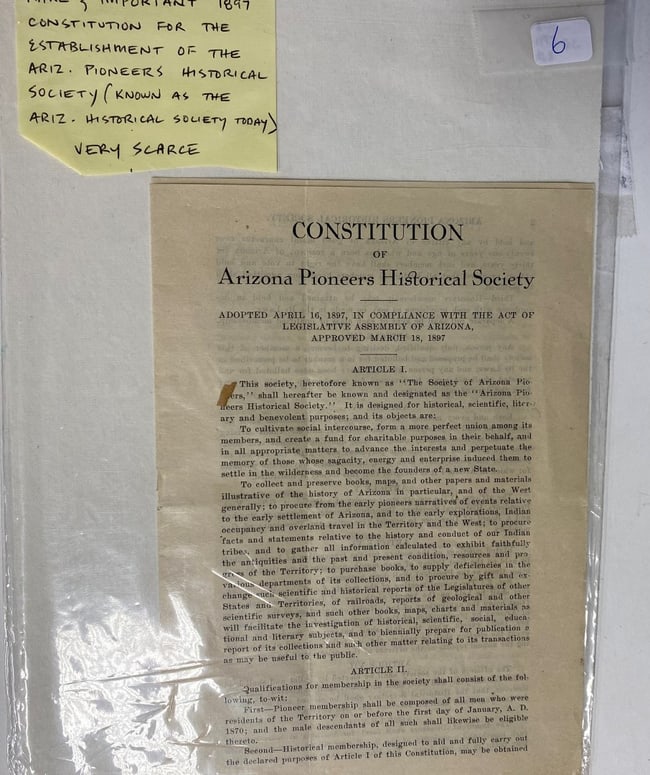 IMPORTANT 1897
CONSTITUTION FOR THE
ESTABLISHMENT OF THE
ARIZ. PIONEERS HISTORICAL
SOCIETY (KNOWN AS THE
ARIZ. HISTORICAL SOCIETY TODAY)
VERY SCARCE
6
CONSTITUTION
OF
Arizona Pioneers Historical Society
ADOPTED APRIL 16, 1897, IN COMPLIANCE WITH THE ACT OF
LEGISLATIVE ASSEMBLY OF ARIZONA,
APPROVED MARCH 18, 1897
ARTICLE I.
This society, heretofore known as "The Society of Arizona Pio-
eers," shall hereafter be known and designated as the "Arizona Pio-
neers Historical Society." It is designed for historical, scientific, liter-
ary and benevolent purposes; and its objects are:
To cultivate social intercourse, form a more perfect union among its
members, and create a fund for charitable purposes in their behalf, and
in all appropriate matters to advance the interests and perpetuate the
memory of those whose sagacity, energy and enterprise induced them to
settle in the wilderness and become the founders of a new State.
To collect and preserve books, maps, and other papers and materials
illustrative of the history of Arizona in particular, and of the West
generally; to procure from the early pioneers narratives of events relative
to the early settlement of Arizona, and to the early explorations, Indian
occupancy and overland travel in the Territory and the West; to procure
facts and statements relative to the history and conduct of our Indian
tribes, and to gather all information calculated to exhibit faithfully
the antiquities and the past and present condition, resources and pro-
gress of the Territory; to purchase books, to supply deficiencies in the
various departments of its collections, and to procure by gift and ex-
change such scientific and historical reports of the Legislatures of other
States and Territories, of railroads, reports of geological and other
scientific surveys, and such other books, maps, charts and materials as
will facilitate the investigation of historical, scientific, social, educa-
tional and literary subjects, and to biennially prepare for publication a
report of its collections and such other matter relating to its transactions
as may be useful to the public.
ARTICLE II.
Qualifications for membership in the society shall consist of the fol-
lowing, to-wit:
First—Pioneer membership shall be composed of all men who were
residents of the Territory on or before the first day of January, A. D.
1870; and the male descendants of all such shall likewise be eligible
thereto.
Second—Historical membership, designed to aid and fully carry out
the declared purposes of Article I of this Constitution, may be obtained